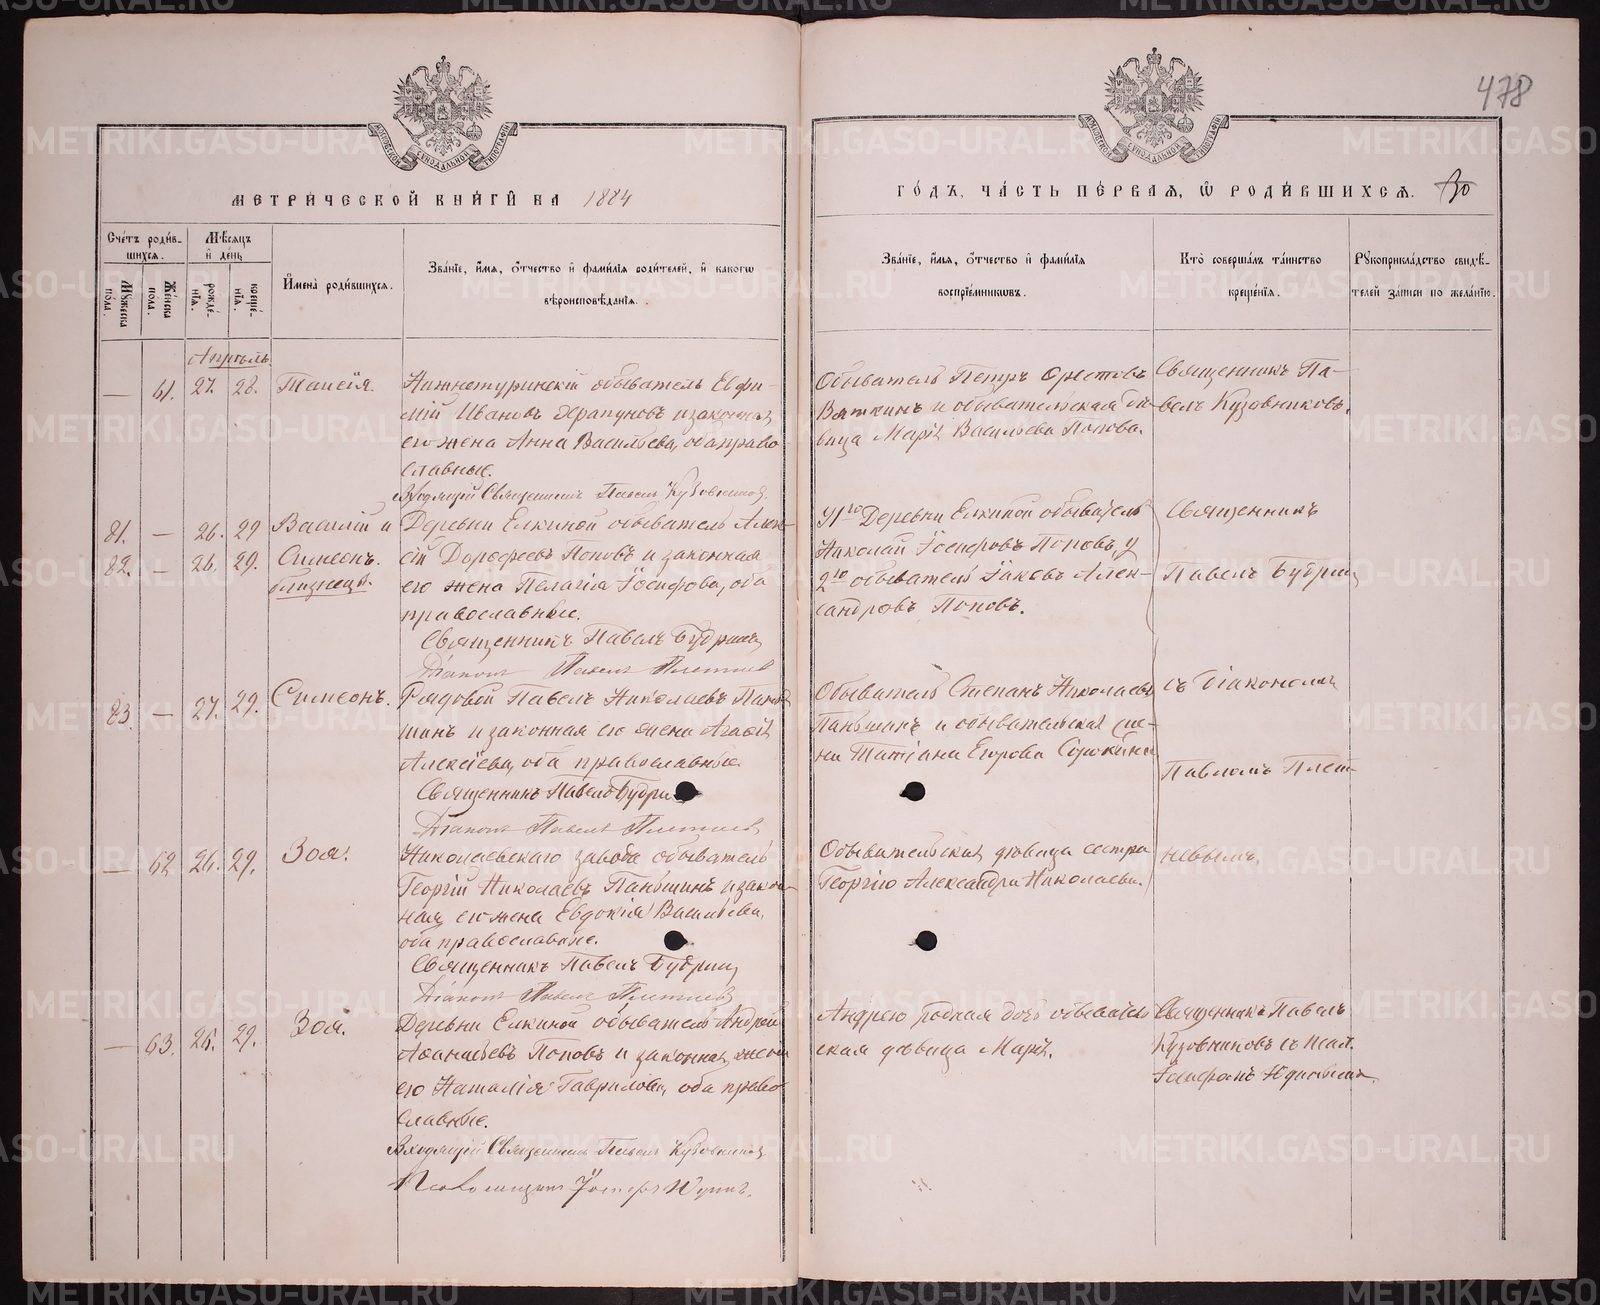 478
МЕТРИ́ЧЕСКОЙ КНИ́ГИ НА 1884
ГО́ДЪ, ЧА́СТЬ ПЕ́РВАЯ, Ѡ РОДИ́ВШИХСЯ.
Сче́тъ роди́в-
шихся.
Мѣ́сяцъ
и҆ де́нь
Му́жеска по́ла.
Же́нска по́ла.
рожде́-нїѧ.
креще́-нїѧ.
И҆мена̀ роди́вшихся.
Зва́нїе, и҆́мя, ѻ҆́тчество и҆ фами́лїя роди́телей, и҆ како́гѡ
вѣроисповѣ́данїя.
Зва́нїе, и҆́мя, ѻ҆́тчество и҆ фами́лїя
воспрїе́мникѡвъ.
Кто̀ соверша́лъ та́инство
креще́нїя.
Рꙋкоприкла́дство свидѣ́-
телей за́писи по жела́нїю.
Апрѣль
— 61. 27. 28. Таисія.
Нижнетуринскій обыватель Евфи-
мій Ивановъ Храпуновъ и законная
его жена Анна Васильева, оба право-
славные.
Входящій Священникъ Павелъ Кузовниковъ
Обыватель Петръ Орестовъ
Вяткинъ и обывательская дѣ-
вица Марія Васильева Попова.
Священникъ Па-
велъ Кузовниковъ.
81. — 26. 29 Василій и
82. — 26. 29. Симеонъ.
близнецы.
Деревни Елкиной обыватель Алек-
сій Дорофеевъ Поповъ и законная
его жена Пелагія Іосифова, оба
православные.
Священникъ Павелъ Будринъ
Діаконъ Павелъ Плетневъ
У 1го Деревни Елкиной обыватель
Николай Іосифовъ Поповъ, у
2го обыватель Іаковъ Алек-
сандровъ Поповъ.
Священникъ
Павелъ Будринъ
83 — 27. 29. Симеонъ.
Рядовой Павелъ Николаевъ Пань-
шинъ и законная его жена Агафія
Алексіева, оба православные
Священникъ Павелъ Будри
Діаконъ Павелъ Плетневъ
Обыватель Степанъ Николаевъ
Паньшинъ и обывательская же-
на Татіана Егорова Сорокина
съ Діакономъ
Павломъ Плет-
— 62 26. 29. Зоя.
Николаевскаго завода обыватель
Георгій Николаевъ Паньшинъ и закон-
ная его жена Евдокія Васильева,
оба православные.
Священникъ Павелъ Будринъ
Діаконъ Павелъ Плетневъ
Обывательская дѣвица сестра
Георгію Александра Николаева.
невымъ,
— 63. 26. 29. Зоя.
Деревни Елкиной обыватель Андрей
Афанасьевъ Поповъ и законная жена
его Наталія Гаврилова, оба право-
славные.
Входящій Священникъ Павелъ Кузовниковъ
Псаломщикъ Іосифъ
Андрею родная дочь обыватель-
ская дѣвица Марія.
Священникъ Павелъ
Кузовниковъ съ псал.
Іосифомъ